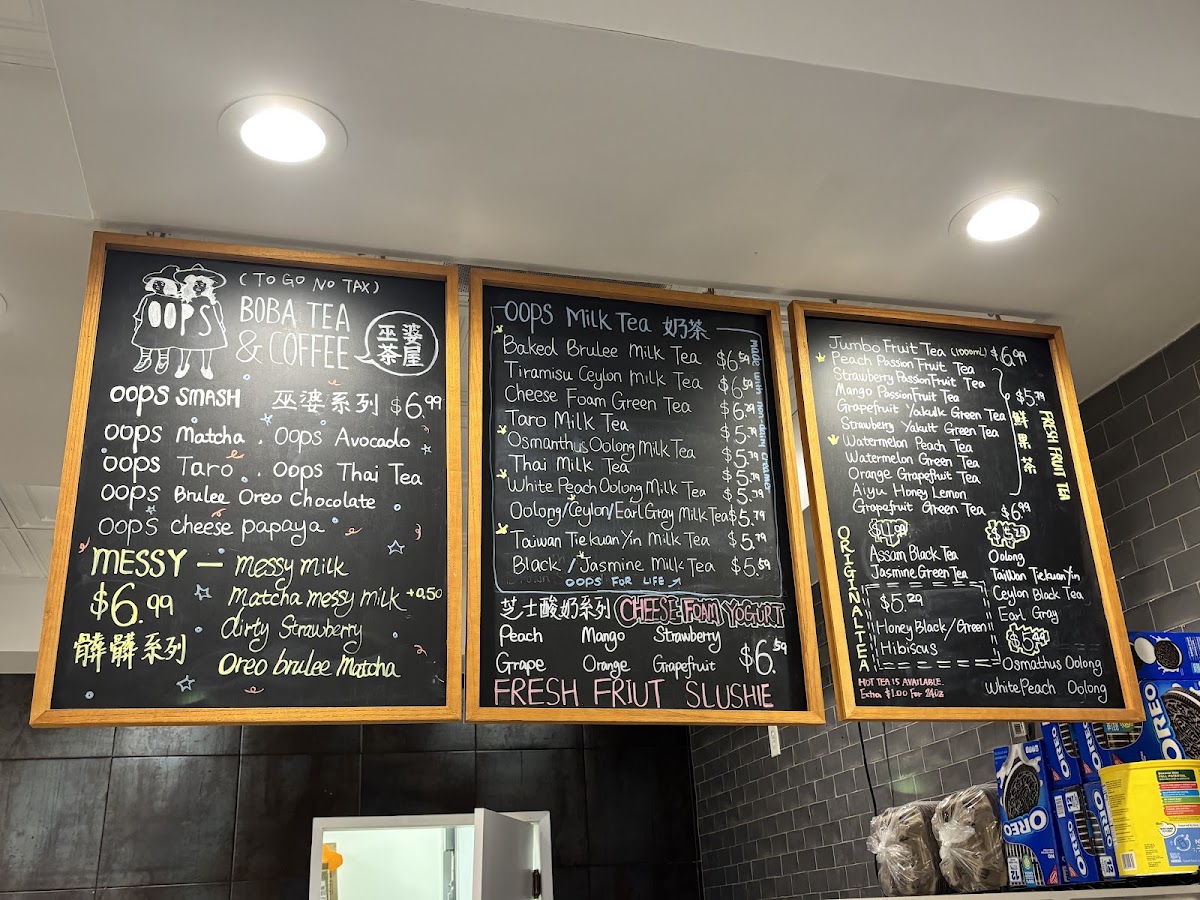 (TO GO NO TAX)
OOPS
BOBA TEA
& COFFEE
巫婆
茶屋
OOPS SMASH 巫婆系列 $6.99
OOPS Matcha . OOPS Avocado
OOPS Taro . OOPS Thai Tea
OOPS Brulee Oreo Chocolate
OOPS cheese papaya
MESSY — Messy milk
$6.99 Matcha messy milk +0.50
髒髒系列 dirty Strawberry
Oreo brulee Matcha
OOPS Milk Tea 奶茶
made with non-dairy creamer
Baked Brulee Milk Tea $6.59
Tiramisu Ceylon Milk Tea $6.59
Cheese Foam Green Tea $6.29
Taro Milk Tea $5.79
Osmanthus Oolong Milk Tea $5.79
Thai Milk Tea $5.79
White Peach Oolong Milk Tea $5.79
Oolong/Ceylon/Earl Gray Milk Tea $5.79
Taiwan Tiekuan Yin Milk Tea $5.79
Black / Jasmine Milk Tea $5.59
OOPS FOR LIFE
芝士酸奶系列 CHEESE FOAM YOGURT
Peach Mango Strawberry
Grape Orange Grapefruit $6.59
FRESH FRIUT SLUSHIE
Jumbo Fruit Tea (1000mL) $6.99
Peach Passion Fruit Tea
Strawberry Passion Fruit Tea
Mango Passion Fruit Tea $5.79
Grapefruit Yakulk Green Tea
Strawberry Yakult Green Tea
Watermelon Peach Tea
Watermelon Green Tea
Orange Grapefruit Tea
Aiyu Honey Lemon
Grapefruit Green Tea $6.99
鮮果茶
FRESH FRUIT TEA
ORIGINAL TEA
Assam Black Tea
Jasmine Green Tea
$5.29
Honey Black/Green
Hibiscus
Oolong
Taiwan Tiekuan Yin
Ceylon Black Tea
Earl Gray
Osmathus Oolong
White Peach Oolong
HOT TEA IS AVAILABLE.
Extra $1.00 For 24oz
OREO
OREO
OREO
OREO